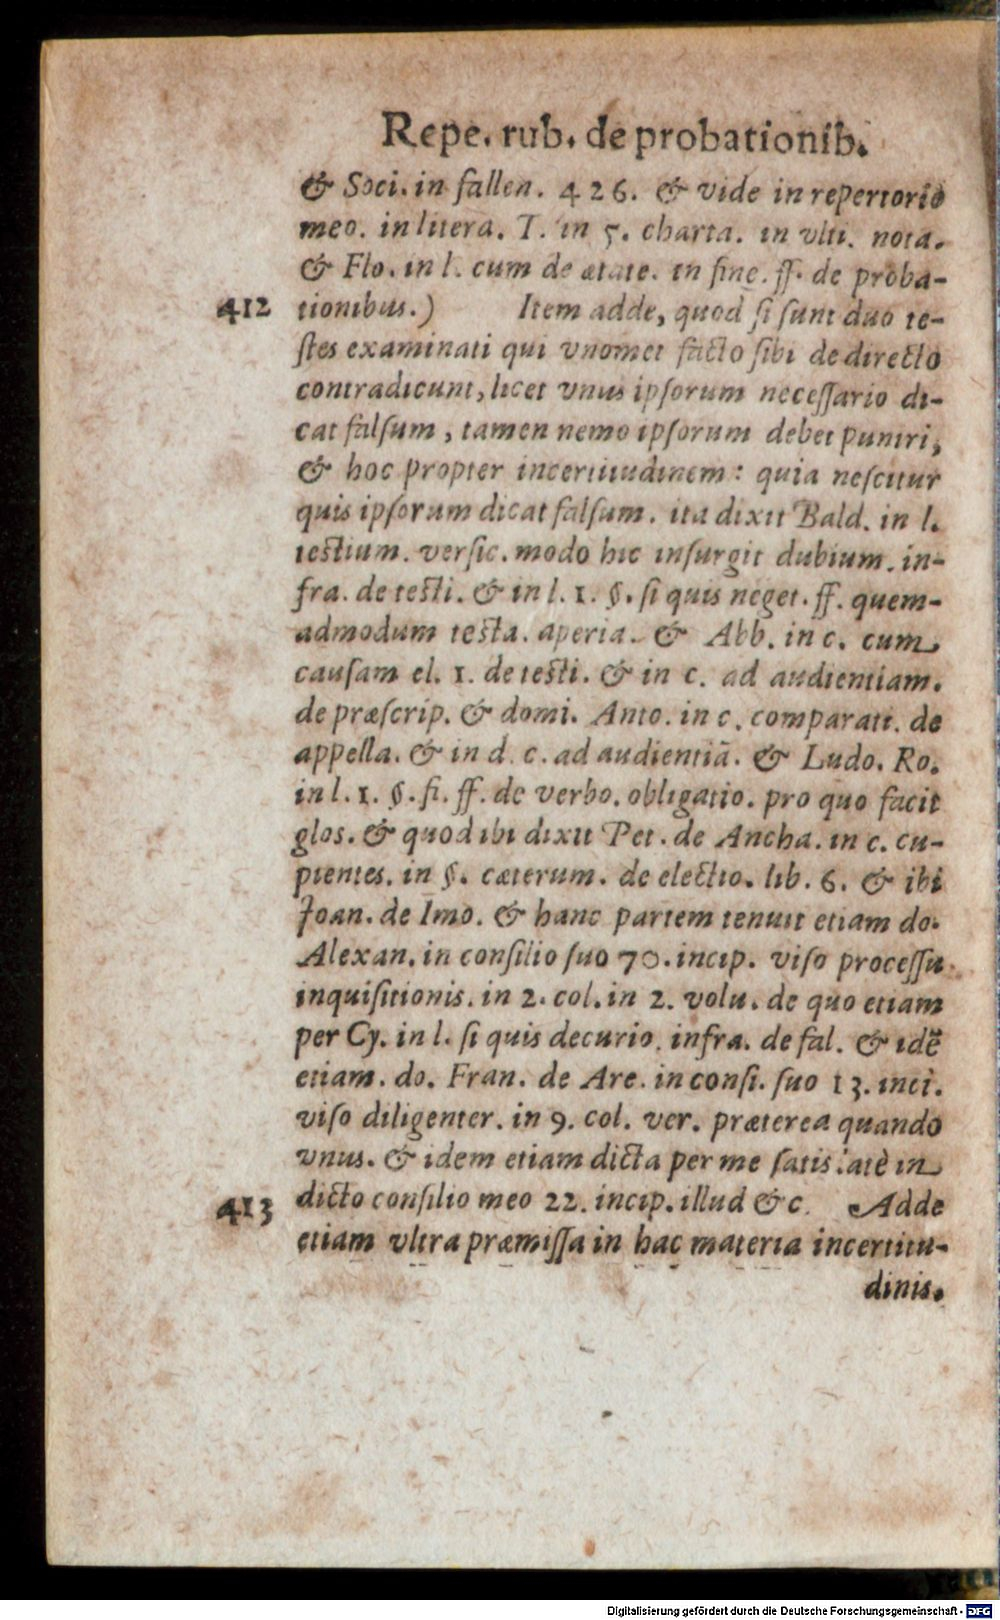 Repe. rub. de probationib.
& Soci. in fallen. 426. & vide in repertorio
meo. in litera. T. in 5. charta. in vlti. nota.
& Flo. in l. cum de ætate. in fine. ff. de proba-
412 tionibus.) Item adde, quod si sunt duo te-
stes examinati qui vnomet facto sibi de directo
contradicunt, licet vnus ipsorum necessario di-
cat falsum, tamen nemo ipsorum debet puniri,
& hoc propter incertitudinem: quia nescitur
quis ipsorum dicat falsum. ita dixit Bald. in l.
testium. versic. modo hic insurgit dubium. in-
fra. de testi. & in l. 1. §. si quis neget. ff. quem-
admodum testa. aperia. & Abb. in c. cum
causam el. 1. de testi. & in c. ad audientiam.
de præscrip. & domi. Anto. in c. comparati. de
appella. & in d. c. ad audientiā. & Ludo. Ro.
in l. 1. §. fi. ff. de verbo. obligatio. pro quo facit
glos. & quod ibi dixit Pet. de Ancha. in c. cu-
pientes. in §. cæterum. de electio. lib. 6. & ibi
Joan. de Imo. & hanc partem tenuit etiam do.
Alexan. in consilio suo 70. incip. viso processu
inquisitionis. in 2. col. in 2. volu. de quo etiam
per Cy. in l. si quis decurio. infra. de fal. & idē
etiam. do. Fran. de Are. in consi. suo 13. inci.
viso diligenter. in 9. col. ver. præterea quando
vnus. & idem etiam dicta per me satis latè in
413 dicto consilio meo 22. incip. illud &c. Adde
etiam vltra præmissa in hac materia incertitu-
dinis.
Digitalisierung gefördert durch die Deutsche Forschungsgemeinschaft - DFG